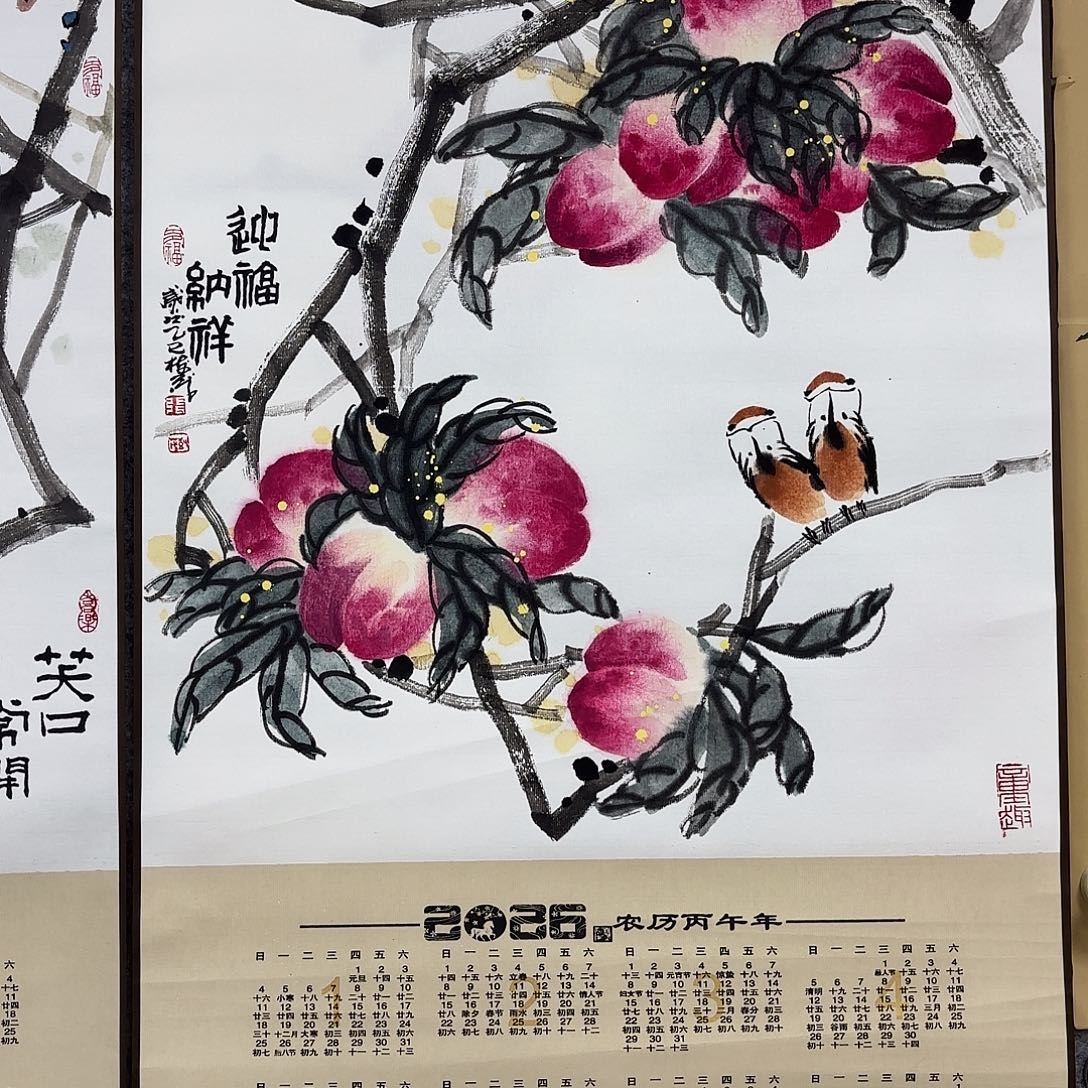 迎福
納祥
笑口
常開
2026 农历丙午年
1
日 一 二 三 四 五 六
1 2 3
元旦 十四 十五
4 5 6 7 8 9 10
十六 小寒 十八 十九 二十 廿一 廿二
11 12 13 14 15 16 17
廿三 廿四 廿五 廿六 廿七 廿八 廿九
18 19 20 21 22 23 24
三十 十二月 大寒 初三 初四 初五 初六
25 26 27 28 29 30 31
初七 腊八节 初九 初十 十一 十二 十三
2
日 一 二 三 四 五 六
1 2 3 4 5 6 7
十四 十五 十六 立春 十八 十九 二十
8 9 10 11 12 13 14
廿一 廿二 廿三 廿四 廿五 廿六 情人节
15 16 17 18 19 20 21
廿八 除夕 春节 雨水 初三 初四 初五
22 23 24 25 26 27 28
初六 初七 初八 初九 初十 十一 十二
3
日 一 二 三 四 五 六
1 2 3 4 5 6 7
十三 十四 元宵节 十六 惊蛰 十八 十九
8 9 10 11 12 13 14
妇女节 廿一 廿二 廿三 廿四 廿五 廿六
15 16 17 18 19 20 21
廿七 廿八 廿九 三十 二月 春分 初三
22 23 24 25 26 27 28
初四 初五 初六 初七 初八 初九 初十
29 30 31
十一 十二 十三
4
日 一 二 三 四 五 六
1 2 3 4
愚人节 十五 十六 十七
5 6 7 8 9 10 11
清明 十九 二十 廿一 廿二 廿三 廿四
12 13 14 15 16 17 18
廿五 廿六 廿七 廿八 廿九 三月 初二
19 20 21 22 23 24 25
初三 谷雨 初五 初六 初七 初八 初九
26 27 28 29 30
初十 十一 十二 十三 十四
日 一 二 三 四 五 六
日 一 二 三 四 五 六
日 一 二 三 四 五 六
日 一 二 三 四 五 六